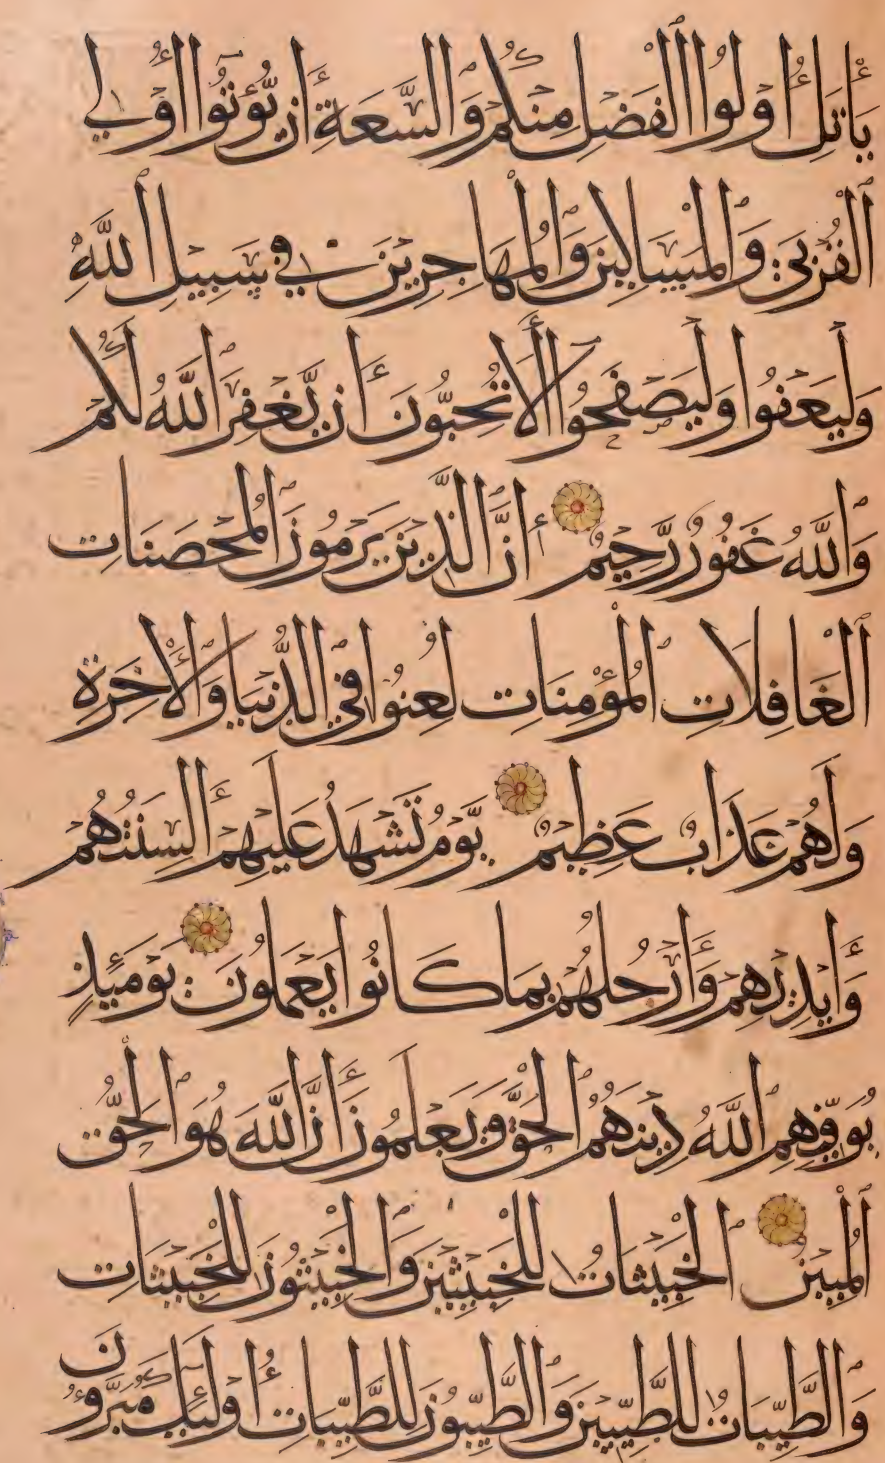 يَأْتَلِ أُولُوا الْفَضْلِ مِنْكُمْ وَالسَّعَةِ أَن يُّؤْتُوا أُولِي
الْقُرْبَى وَالْمَسَاكِينَ وَالْمُهَاجِرِينَ فِي سَبِيلِ اللَّهِ
وَلْيَعْفُوا وَلْيَصْفَحُوا أَلَا تُحِبُّونَ أَن يَّغْفِرَ اللَّهُ لَكُمْ
وَاللَّهُ غَفُورٌ رَّحِيمٌ إِنَّ الَّذِينَ يَرْمُونَ الْمُحْصَنَاتِ
الْغَافِلَاتِ الْمُؤْمِنَاتِ لُعِنُوا فِي الدُّنْيَا وَالْأَخِرَةِ
وَلَهُمْ عَذَابٌ عَظِيمٌ يَّوْمَ تَشْهَدُ عَلَيْهِمْ أَلْسِنَتُهُمْ
وَأَيْدِيهِمْ وَأَرْجُلُهُمْ بِمَا كَانُوا يَعْمَلُونَ يَوْمَئِذٍ
يُوَفِّيهِمُ اللَّهُ دِينَهُمُ الْحَقَّ وَيَعْلَمُونَ أَنَّ اللَّهَ هُوَ الْحَقُّ
الْمُبِينُ الْخَبِيثَاتُ لِلْخَبِيثِينَ وَالْخَبِيثُونَ لِلْخَبِيثَاتِ
وَالطَّيِّبَاتُ لِلطَّيِّبِينَ وَالطَّيِّبُونَ لِلطَّيِّبَاتِ أُولَئِكَ مُبَرَّؤُونَ